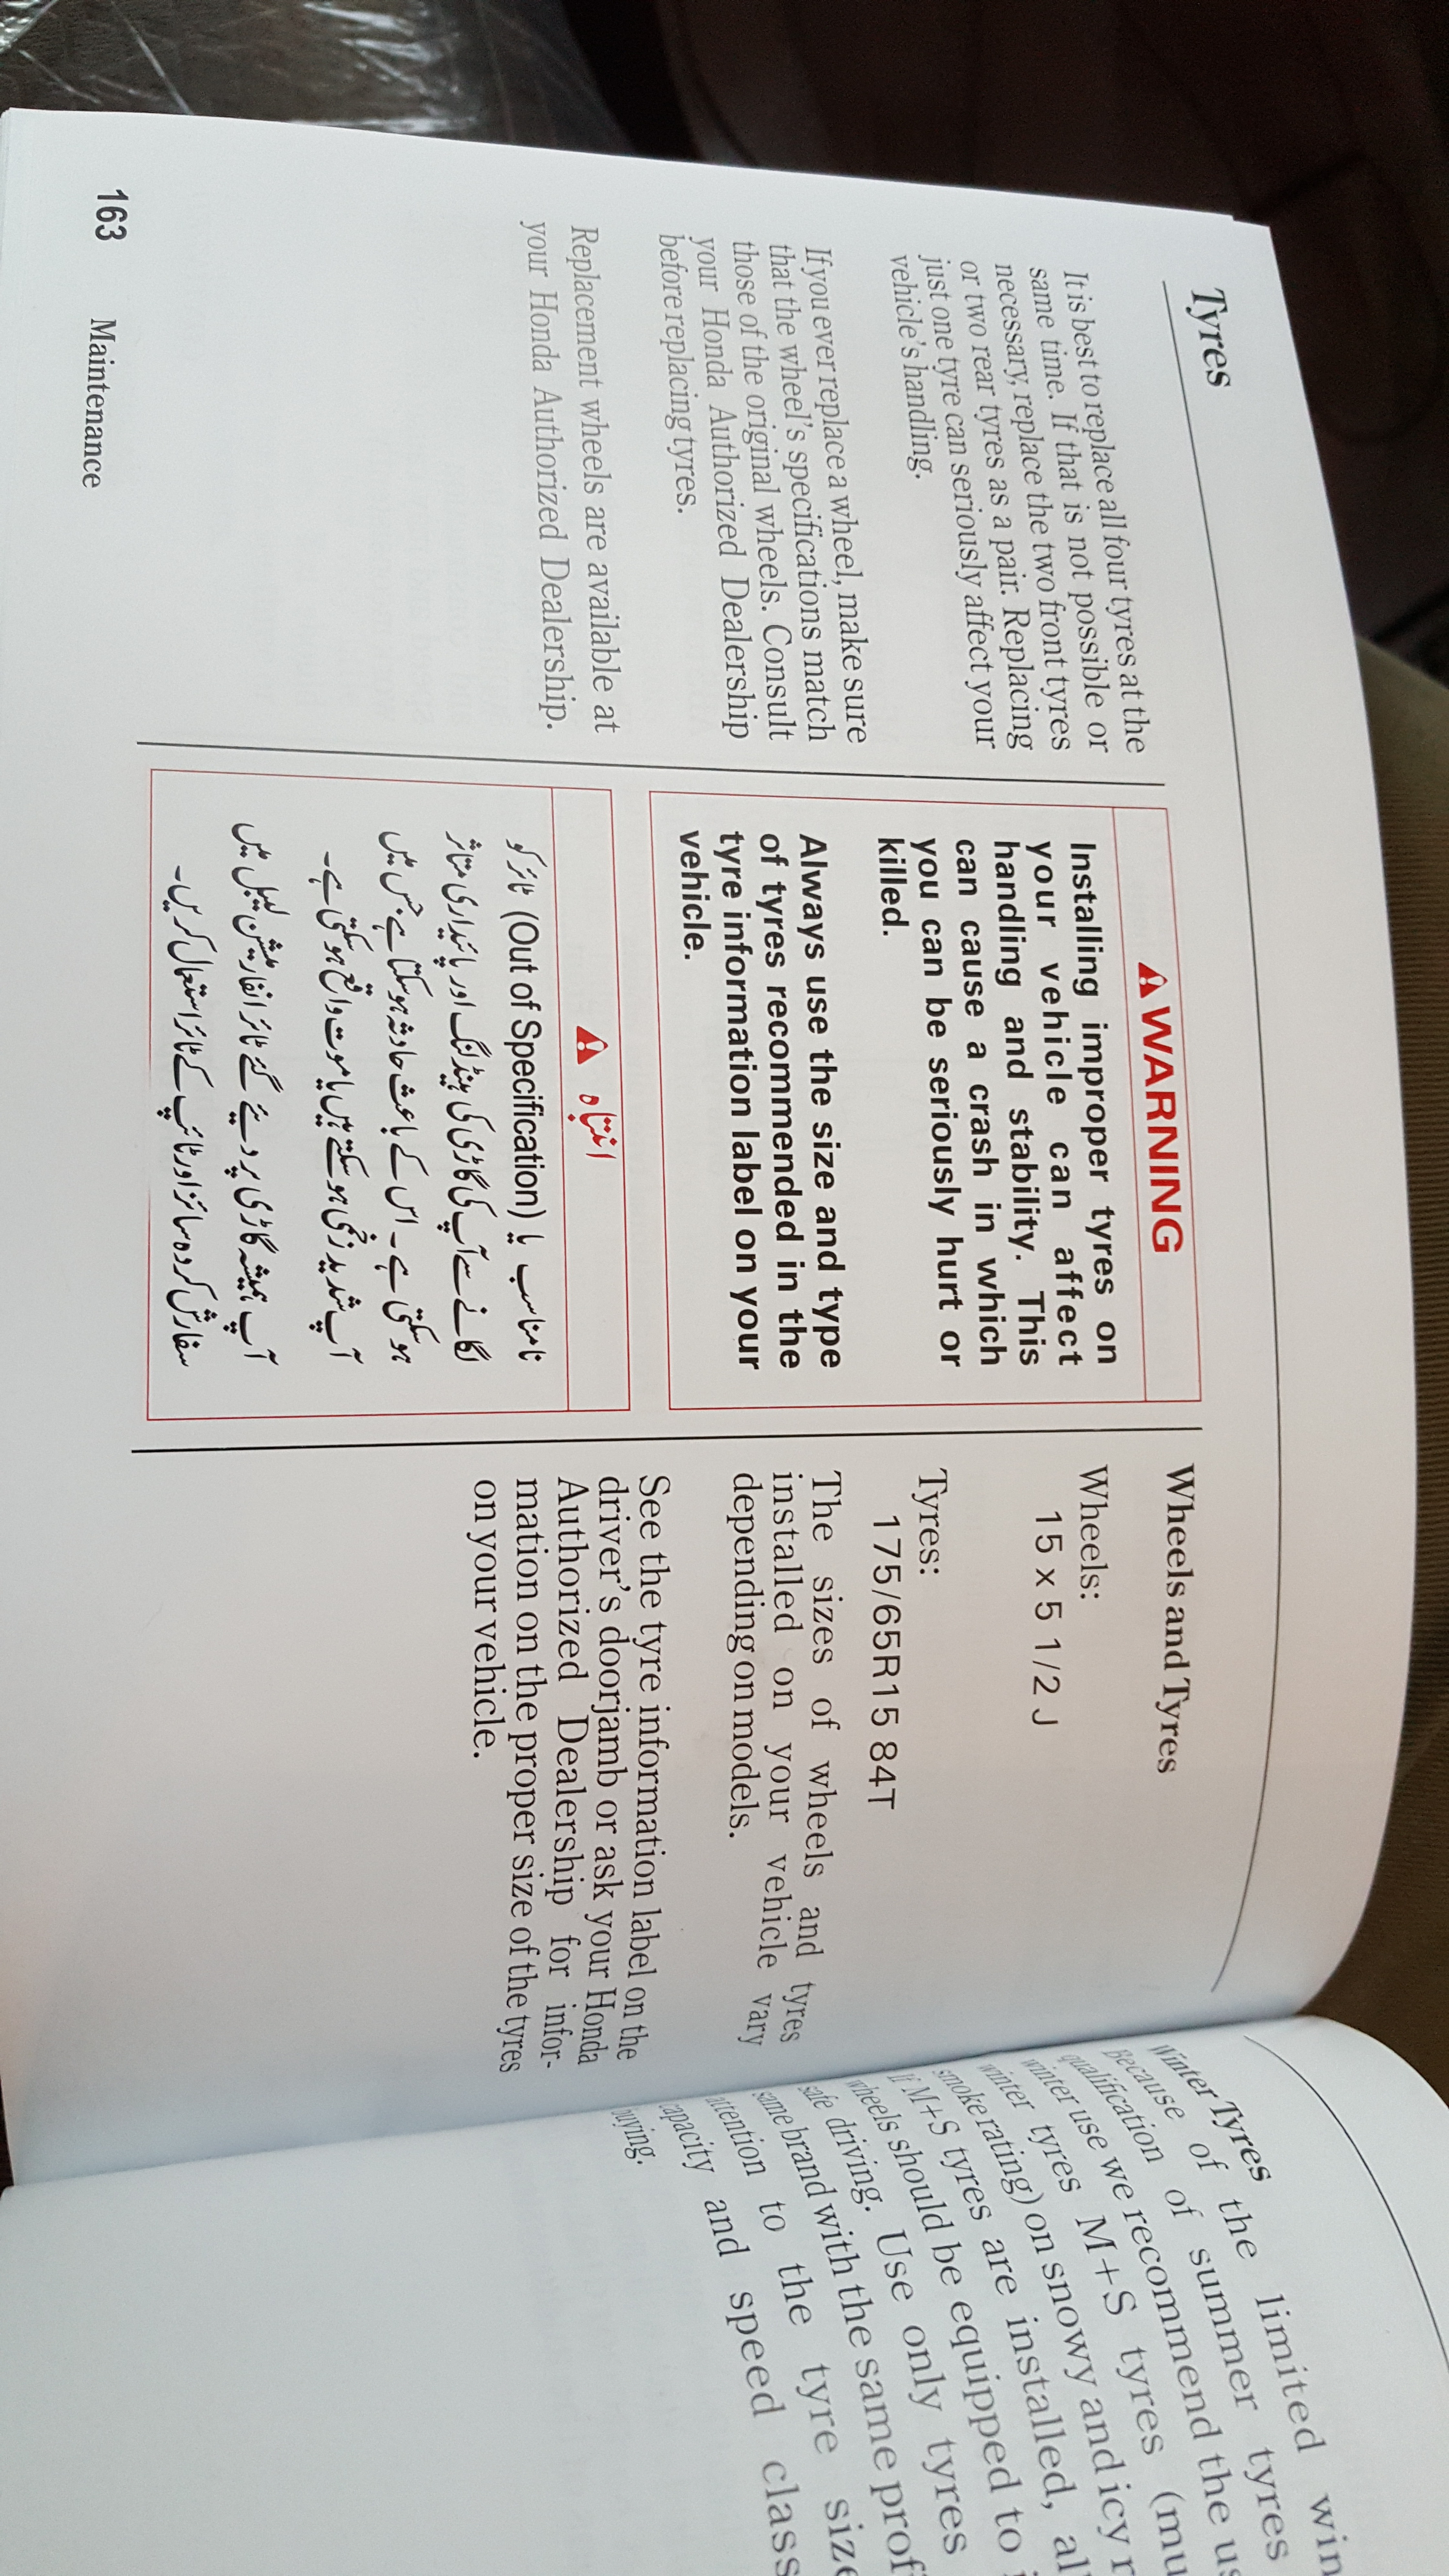 Tyres
It is best to replace all four tyres at the
same time. If that is not possible or
necessary, replace the two front tyres
or two rear tyres as a pair. Replacing
just one tyre can seriously affect your
vehicle's handling.
If you ever replace a wheel, make sure
that the wheel's specifications match
those of the original wheels. Consult
your Honda Authorized Dealership
before replacing tyres.
Replacement wheels are available at
your Honda Authorized Dealership.
WARNING
Installing improper tyres on
your vehicle can affect
handling and stability. This
can cause a crash in which
you can be seriously hurt or
killed.
Always use the size and type
of tyres recommended in the
tyre information label on your
vehicle.
انتباہ
نامناسب یا (Out of Specification) ٹائر کو
لگانے سے آپ کی گاڑی کی ہینڈلنگ اور پائیداری متاثر
ہو سکتی ہے۔ اس کے باعث حادثہ ہو سکتا ہے جس میں
آپ شدید زخمی ہو سکتے ہیں یا موت واقع ہو سکتی ہے۔
آپ ہمیشہ گاڑی پر دیئے گئے ٹائر انفارمیشن لیبل میں
سفارش کردہ سائز اور ٹائپ کے ٹائر استعمال کریں۔
Wheels and Tyres
Wheels:
15 x 5 1/2 J
Tyres:
175/65R15 84T
The sizes of wheels and tyres
installed on your vehicle vary
depending on models.
See the tyre information label on the
driver's doorjamb or ask your Honda
Authorized Dealership for infor-
mation on the proper size of the tyres
on your vehicle.
163 Maintenance
Winter Tyres
Because of the limited
qualification of summer tyres
winter use we recommend the
winter tyres M+S tyres
smoke rating) on snowy and icy
If M+S tyres are installed,
wheels should be equipped to
safe driving. Use only tyres
same brand with the same
attention to the tyre
capacity and speed class
buying.